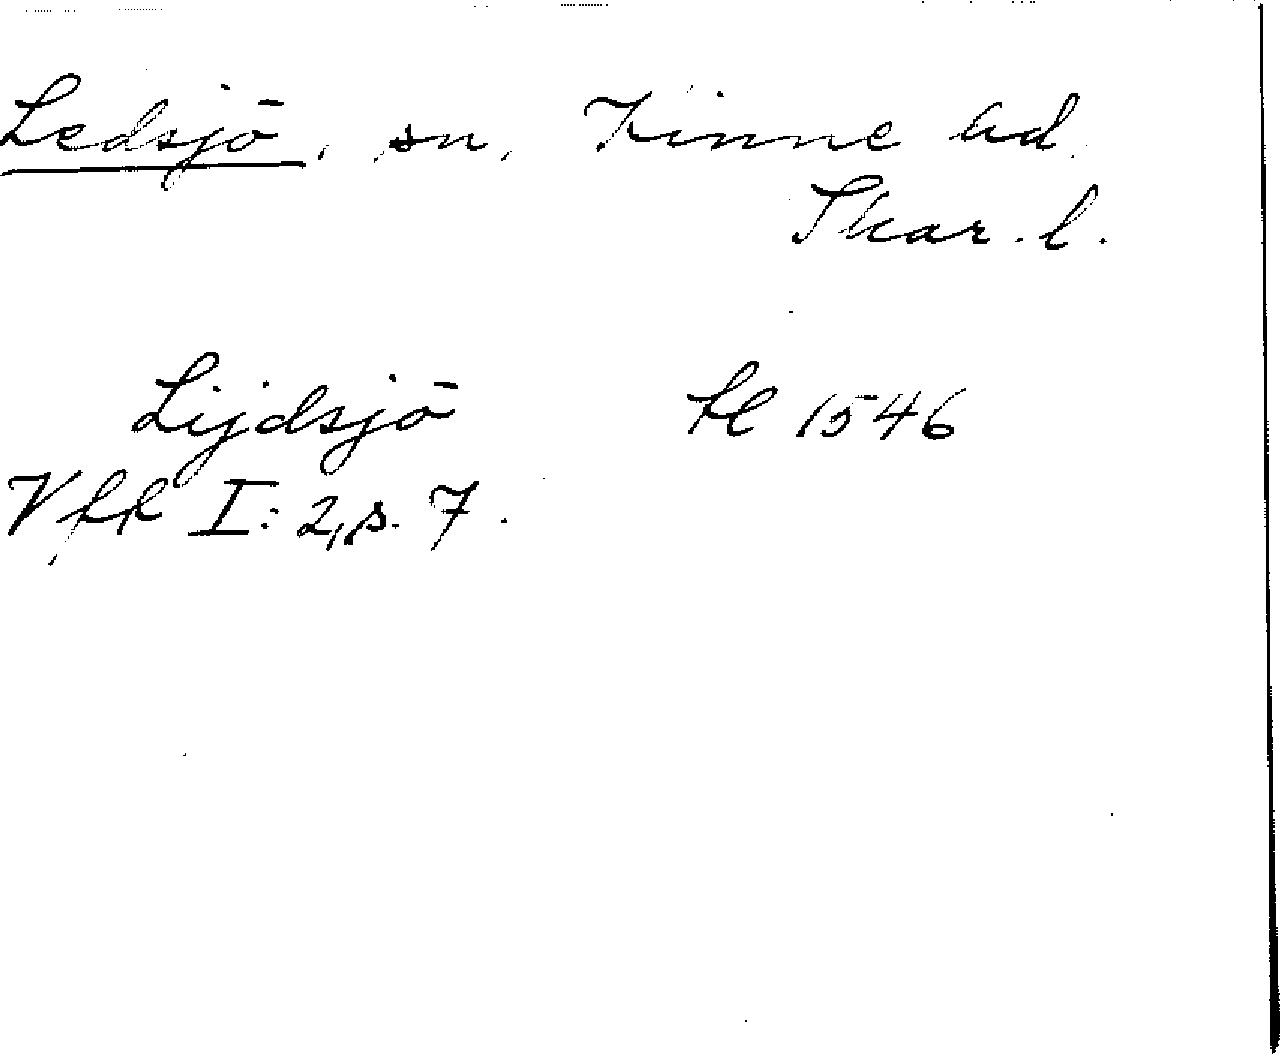 Ledsjö, sn, Kinne hd.
Skar. l.
Lijdsjö 1546
I: 2, s. 7.